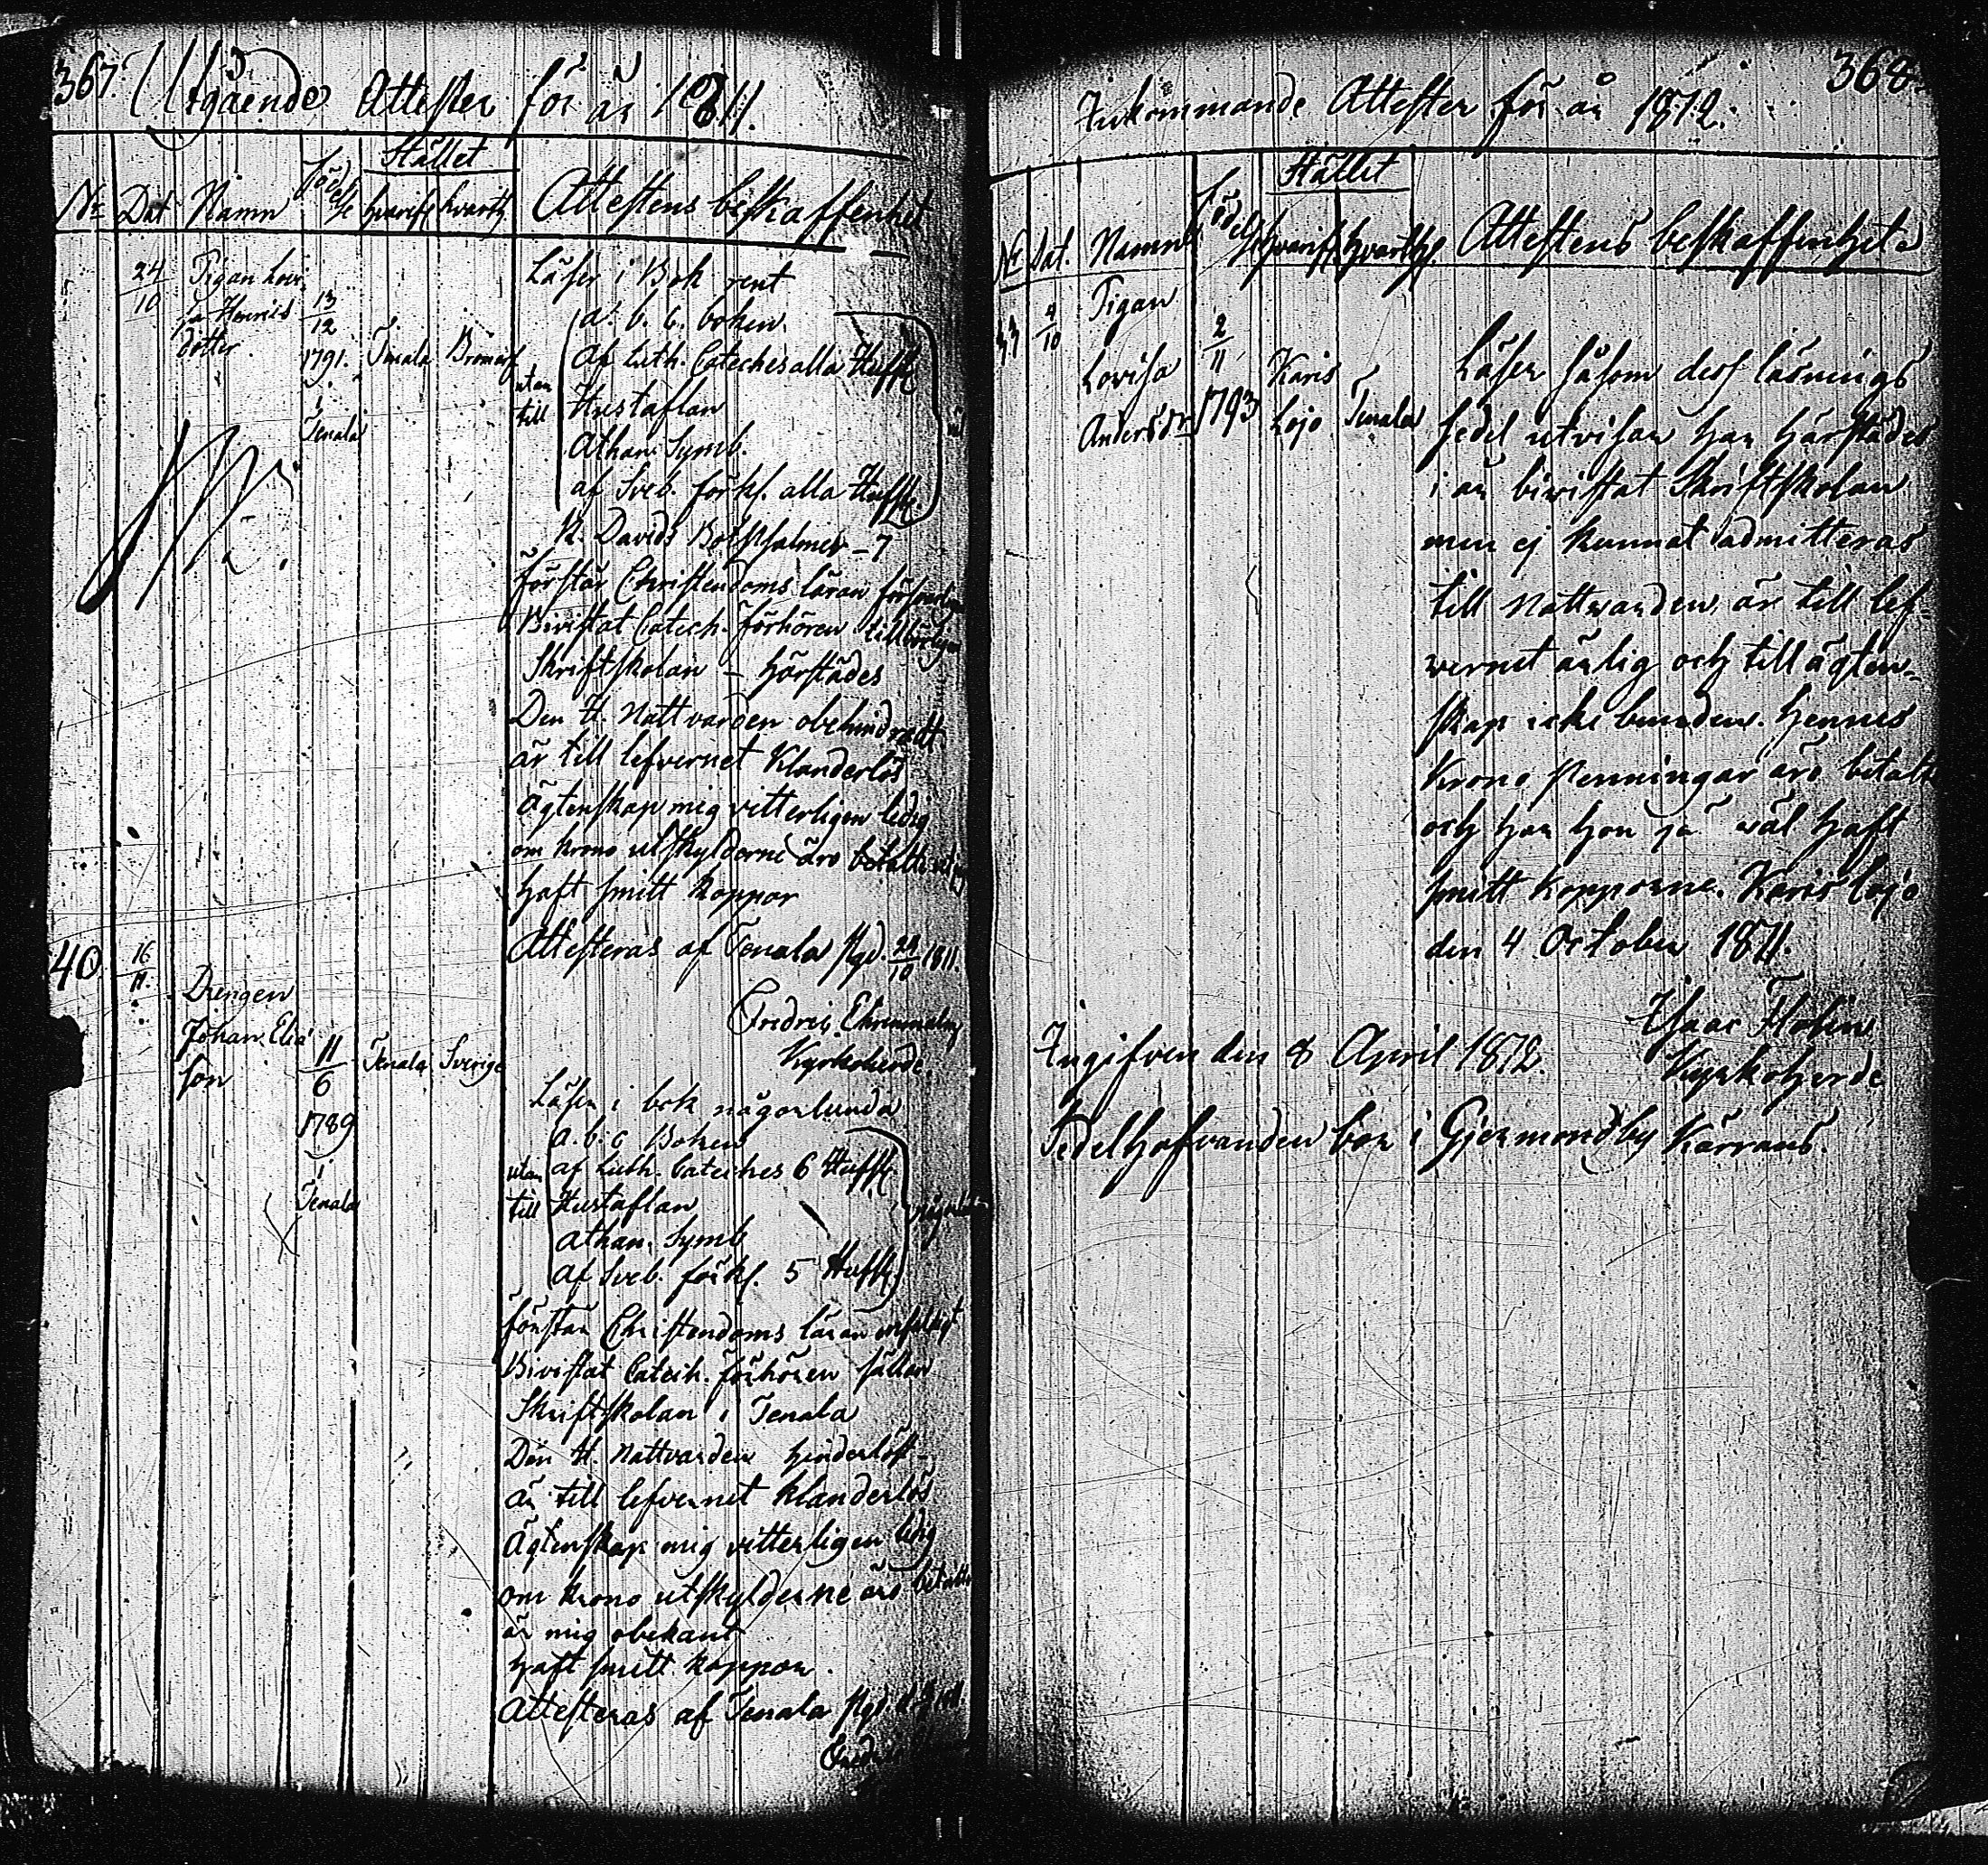 367.
Utgående Attester för år 1811.
Stället
No Dat Namn Födelse hvarifr. hvarth. Attestens beskaffenhet
24/10 Pigan Lovi
sa Henrics
dotter
13/12
1791.
i
Tenala
Tenala Bromarf
Läser i Bok rent
utan
till
a. b. c. boken
Af Luth. Cateches alla Hufst.
Hustaflan
Athan. Symb.
af Sveb. förkl. alla Hufst.
K. Davids Bot Psalmer - 7
förstår Christendoms läran
Bivistat Catech. förhören
Skriftskolan - härstädes
Den H. Nattvarden obehindradt
är till lefvernet Klanderlös
Ägtenskap mig vitterligen ledig
om krono utskylderne äro betalte
haft smitt koppor
Attesteras af Tenala Pgd. 24/10 1811.
Fredric Ehrenmalm
Kyrkoherde.
40
16/11.
Drengen
Johan Elia
son
11/6
1789
i
Tenala
Tenala Sverige
Läser i bok någorlunda
utan
till
a. b. c Boken
af Luth. Cateches 6 Hufst.
Hustaflan
Athan. Symb
Af Sveb. förkl. 5 Hufst.
någorlunda
förstår Christendoms läran enfaldigt
Bivistat Catech. förhören sällan
Skriftskolan i Tenala
Den H. Nattvarden hinderlöst
är till lefvernet klanderlös
Ägtenskap mig vitterligen ledig
om krono utskylderne äro betalte
är mig obekant
haft smitt koppor.
Attesteras af Tenala Pgd.
368.
Inkommande Attester för år 1812.
Stället
No Dat. Namn Födelse hvarifr. hvarth. Attestens beskaffenhet
33
4/10
Pigan
Lovisa
Andersdr
2/11
1793
Karis
Lojo
Tenala
Läser såsom dess läsnings
sedel utvisar har härstädes
i år bivistat Skriftskolan
men ej kunnat admitteras
till Nattvarden, är till lef
vernet ärlig och till ägten-
skap icke bunden. hennes
Krono Penningar äro betalte
och har hon jä väl haft
smitt Kopporne. Karislojo
den 4 October 1811.
Isaac Florin
Kyrkoherde
Ingifven den 8 April 1812.
Sedelhafvanden bor i Gjermondby Kärrans.